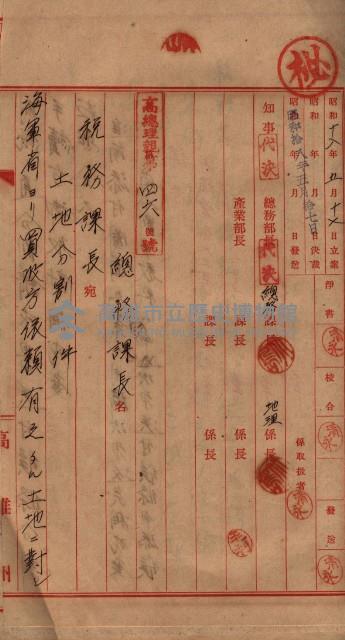 秘
昭和十八年五月十七日立案
昭和 年 月 日決裁
昭和 年 月 日發送
昭和拾八年五月拾七日
淨書
校合
發送
知事 代決
總務部長 代決
總務課長
地理係長
係取扱者
產業部長
課長
係長
課長
係長
高總理親第四六號
總務課長名
稅務課長宛
土地分割ノ件
海軍省ヨリ買收方依賴有之タル土地ニ對シ
高雄州
高雄市立歷史博物館